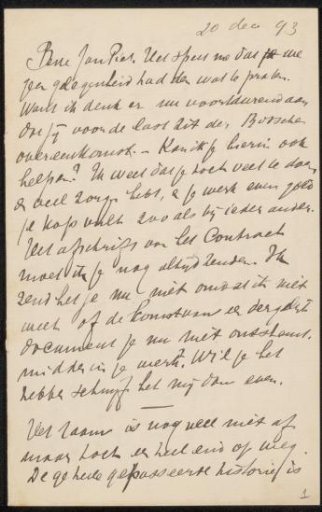 20 dec 93
Beste Jan Piet. Het speet me dat we
geen gelegenheid hadden wat te praten.
Want ik denk er nu voortdurend aan
dat jij voor de last zit der Bossche
overeenkomst. – Kan ik je hierin ook
helpen? Ik weet dat je toch veel te doen
en veel zorgen hebt, en je werk even goed
je kop vult zooals bij ieder ander.
Het afschrift van het Contract
moet ik je nog altijd zenden. Ik
zend het je nu niet omdat ik niet
weet of de komst van een dergelijk
document je nu niet ontstemt
midden in je werk. Wil je het
hebben schrijf het mij dan even.
Het raam is nog wel niet af
maar toch een heel eind op weg.
De geheele gepasseerde historie is
1